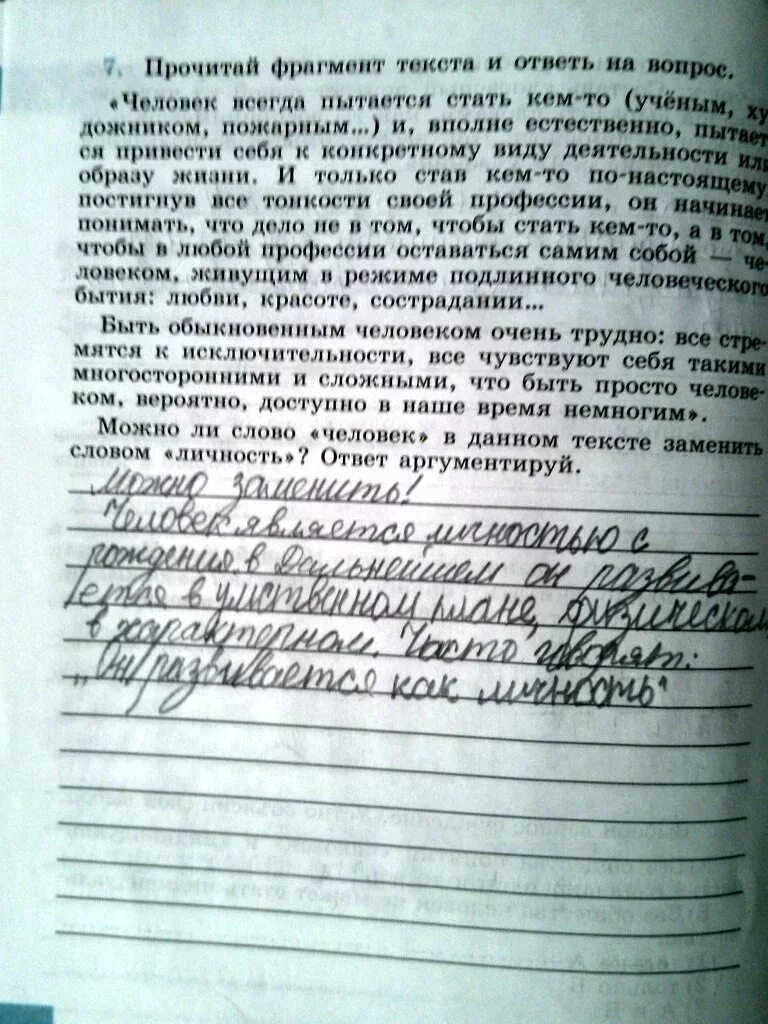 7. Прочитай фрагмент текста и ответь на вопрос.
«Человек всегда пытается стать кем-то (учёным, ху
дожником, пожарным...) и, вполне естественно, пытает
ся привести себя к конкретному виду деятельности или
образу жизни. И только став кем-то по-настоящему
постигнув все тонкости своей профессии, он начинает
понимать, что дело не в том, чтобы стать кем-то, а в том,
чтобы в любой профессии оставаться самим собой — че-
ловеком, живущим в режиме подлинного человеческого
бытия: любви, красоте, сострадании...
Быть обыкновенным человеком очень трудно: все стре-
мятся к исключительности, все чувствуют себя такими
многосторонними и сложными, что быть просто челове-
ком, вероятно, доступно в наше время немногим».
Можно ли слово «человек» в данном тексте заменить
словом «личность»? Ответ аргументируй.
Можно заменить!
Человек является личностью с
рождения в Дальнейшем он развива-
ется в умственном плане, физическом
в характерном. Часто говорят:
„Он развивается как личность"